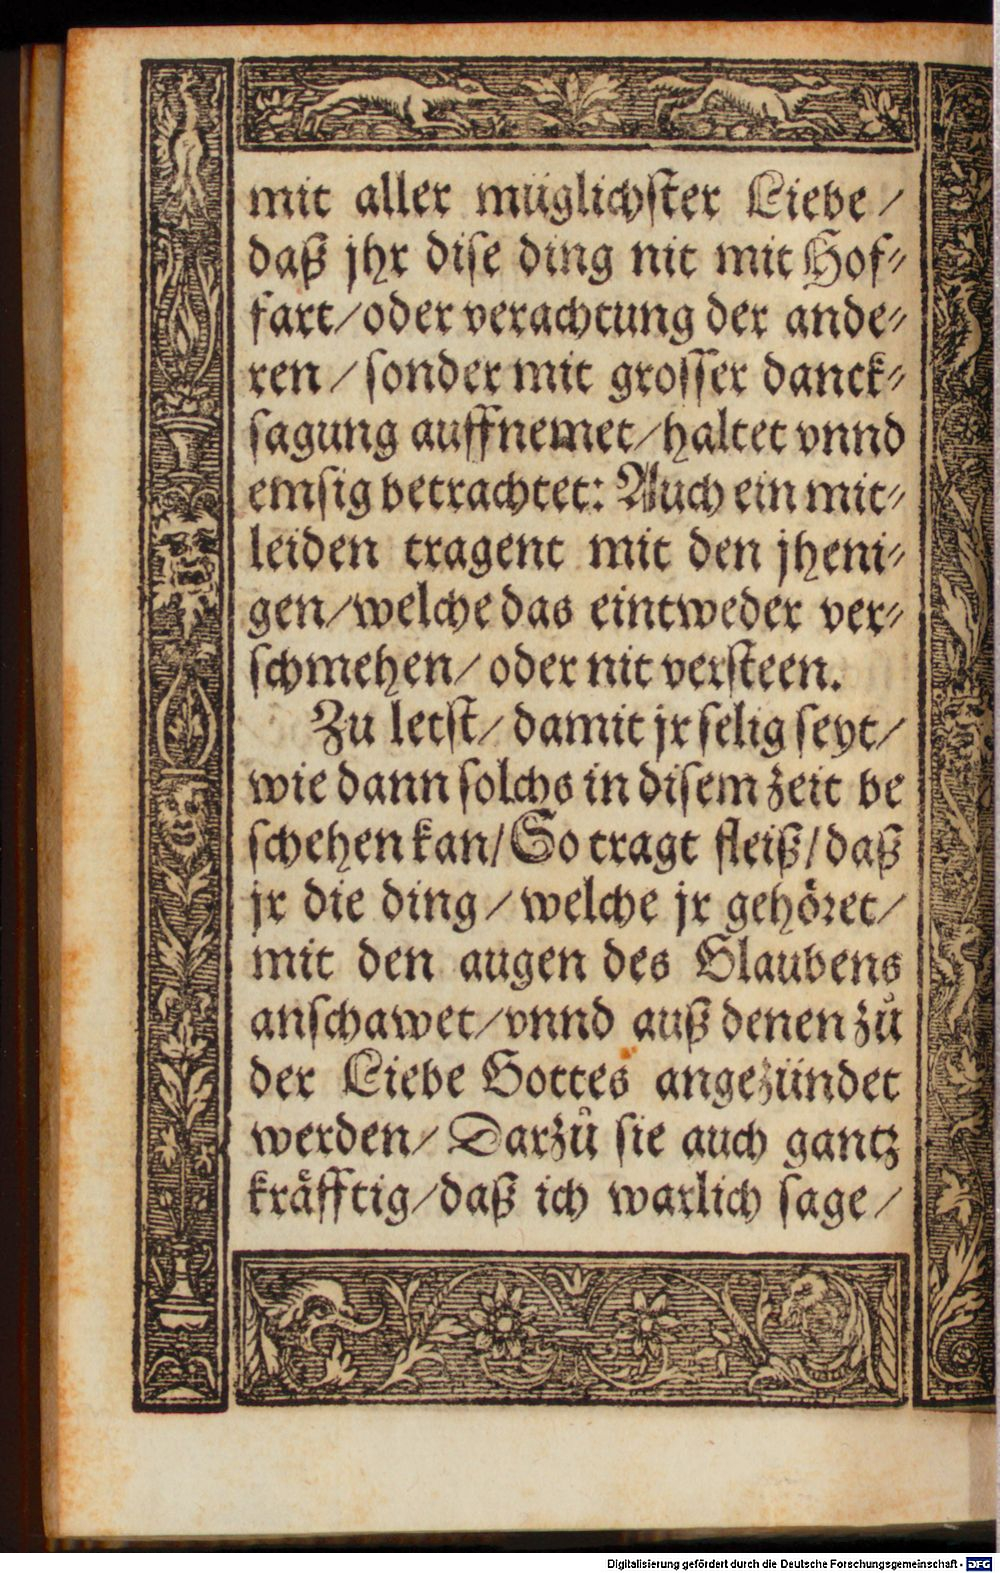 mit aller müglichster Liebe /
daß jhr dise ding nit mit Hof-
fart / oder verachtung der ande-
ren / sonder mit grosser danck-
sagung auffnemet / haltet vnnd
emsig betrachtet: Auch ein mit-
leiden tragent mit den jheni-
gen / welche das eintweder ver-
schmehen / oder nit versteen.
Zu letst / damit jr selig seyt /
wie dann solchs in disem zeit be
schehen kan / So tragt fleiß / daß
jr die ding / welche jr gehöret /
mit den augen des Glaubens
anschawet / vnnd auß denen zů
der Liebe Gottes angezündet
werden / Darzů sie auch gantz
kräfftig / daß ich warlich sage /
Digitalisierung gefördert durch die Deutsche Forschungsgemeinschaft - DFG